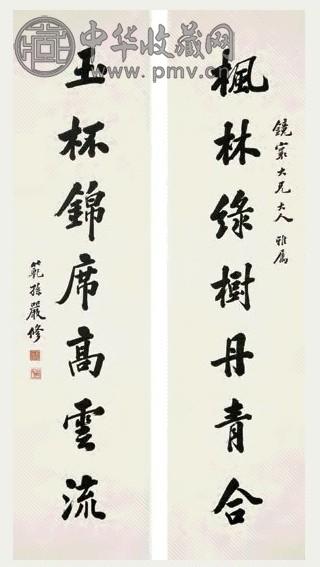 中华收藏网
www.pmv.cn
鏡宸大兄大人 雅屬
楓林綠樹丹青合
玉杯錦席高雲流
範孫嚴修